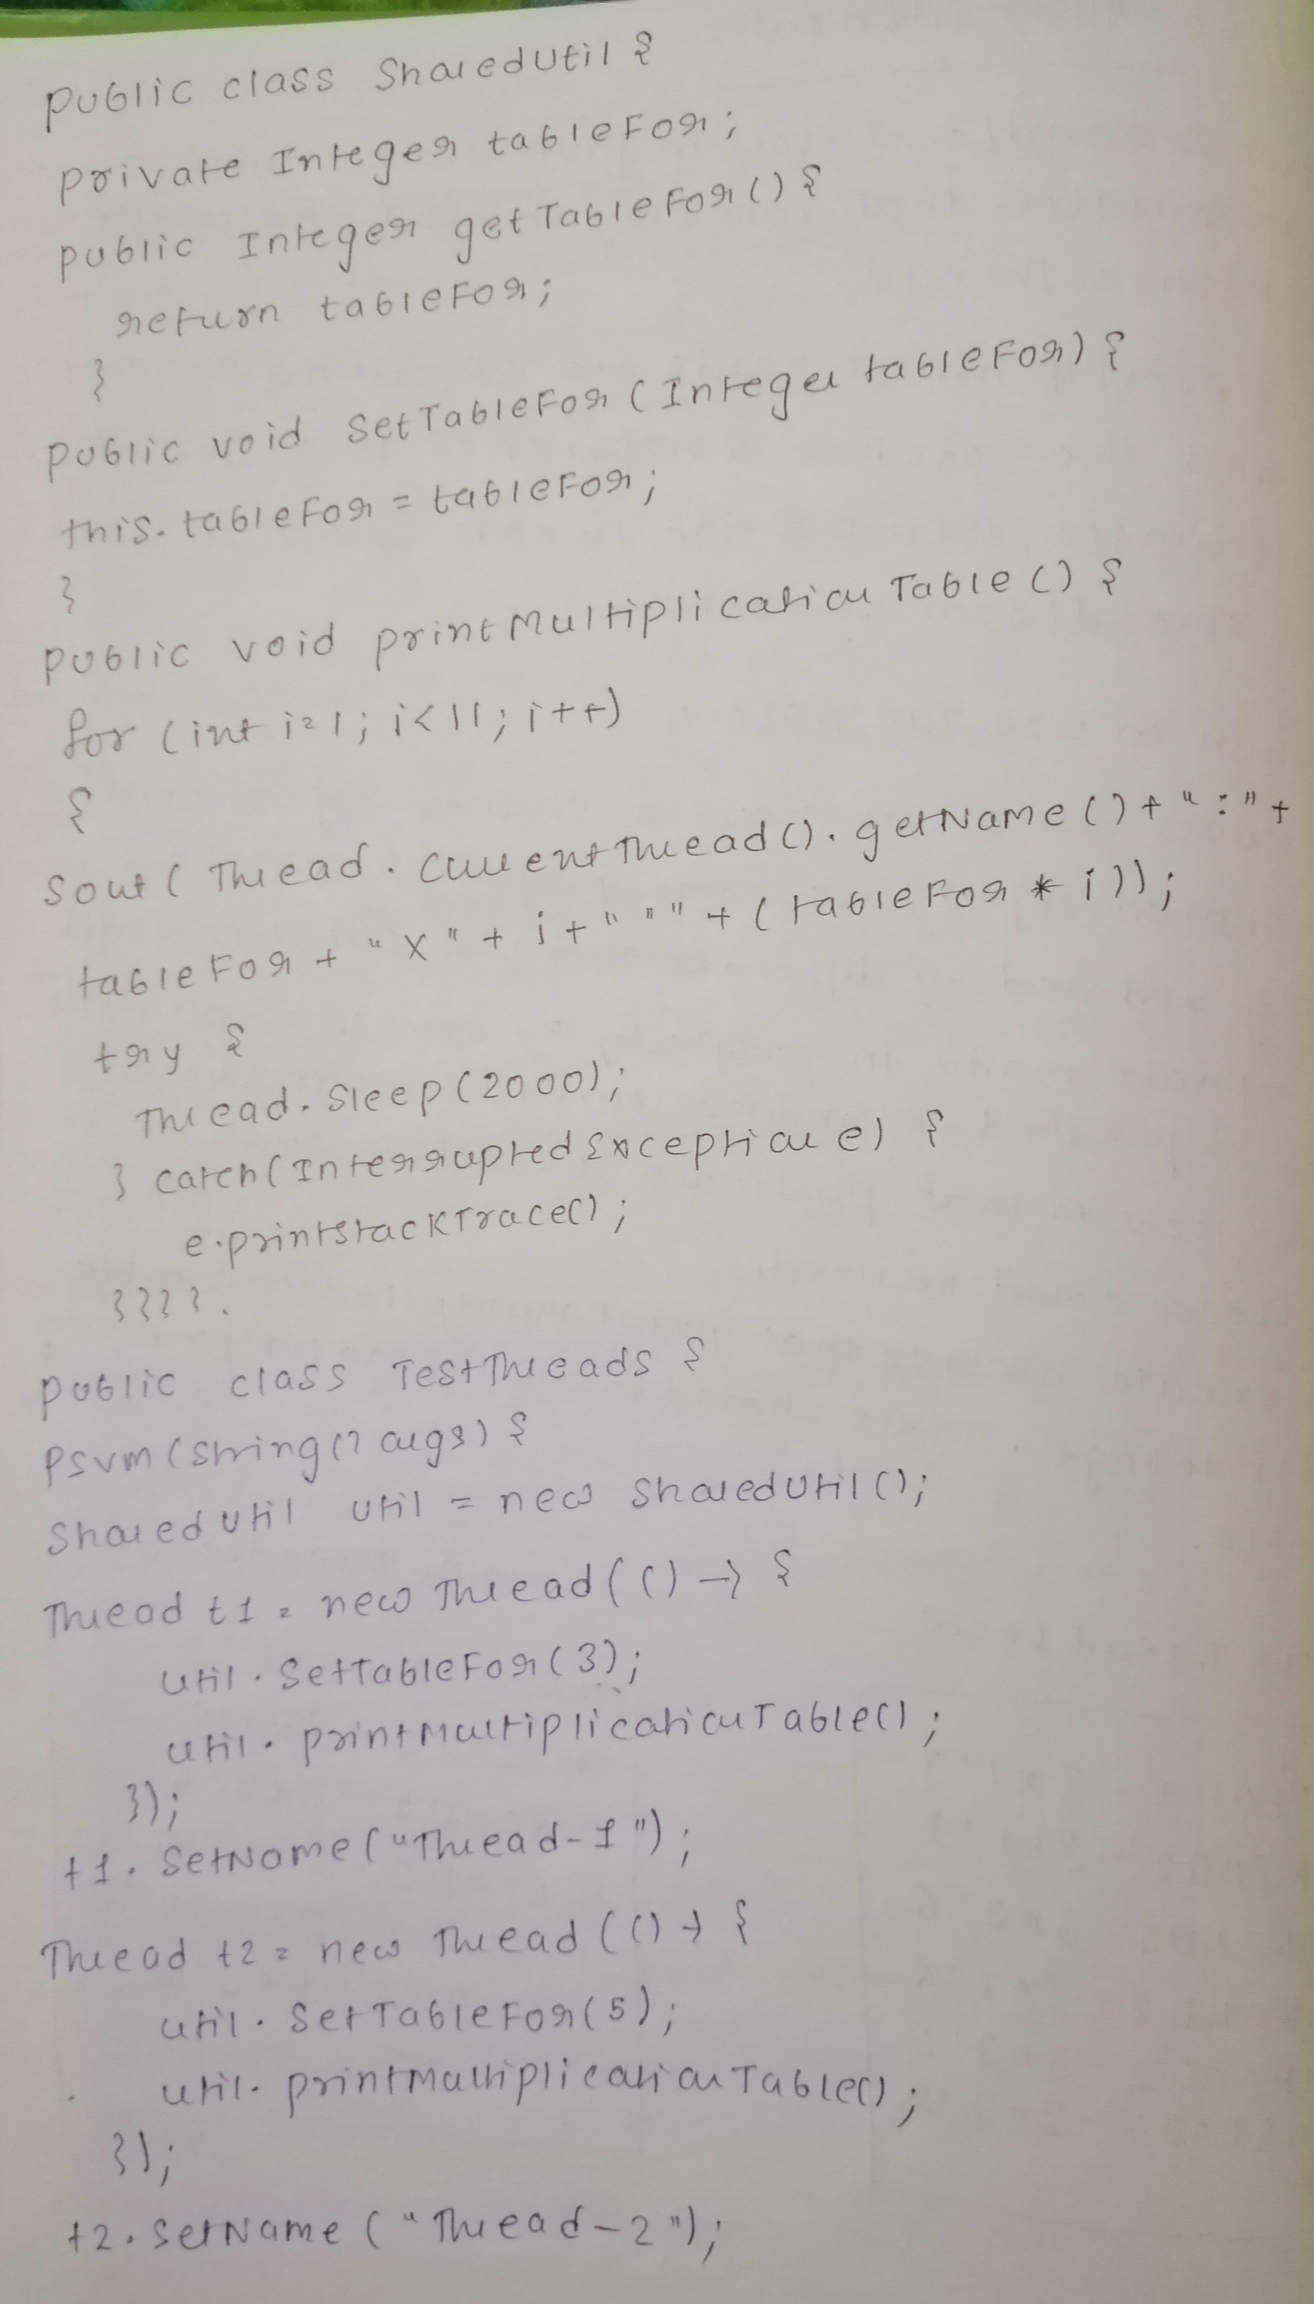 public class SharedUtil {
private Integer tableFor;
public Integer getTableFor() {
return tableFor;
}
public void SetTableFor (Integer tableFor) {
this.tableFor = tableFor;
}
public void printMultiplicationTable () {
for (int i=1; i<11; i++)
{
Sout ( Thread . currentThread () . getName () + " : " +
tableFor + " X " + i + " = " + ( tableFor * i ));
try {
Thread . Sleep (2000);
} catch (InterruptedException e) {
e.printStackTrace();
}}}}.
public class TestThreads {
Psvm (String [] args) {
SharedUtil util = new SharedUtil ();
Thread t1 = new Thread (() -> {
util . SetTableFor (3);
util . printMultiplicationTable();
});
t1 . SetName ("Thread-1");
Thread t2 = new Thread (() -> {
util . SetTableFor (5);
util . printMultiplicationTable();
});
t2 . SetName ("Thread-2");